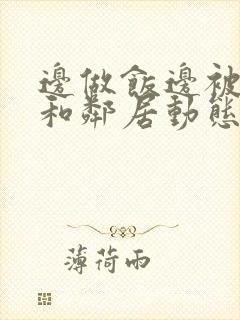 邊做飯邊被
和鄰居動態
薄荷雨